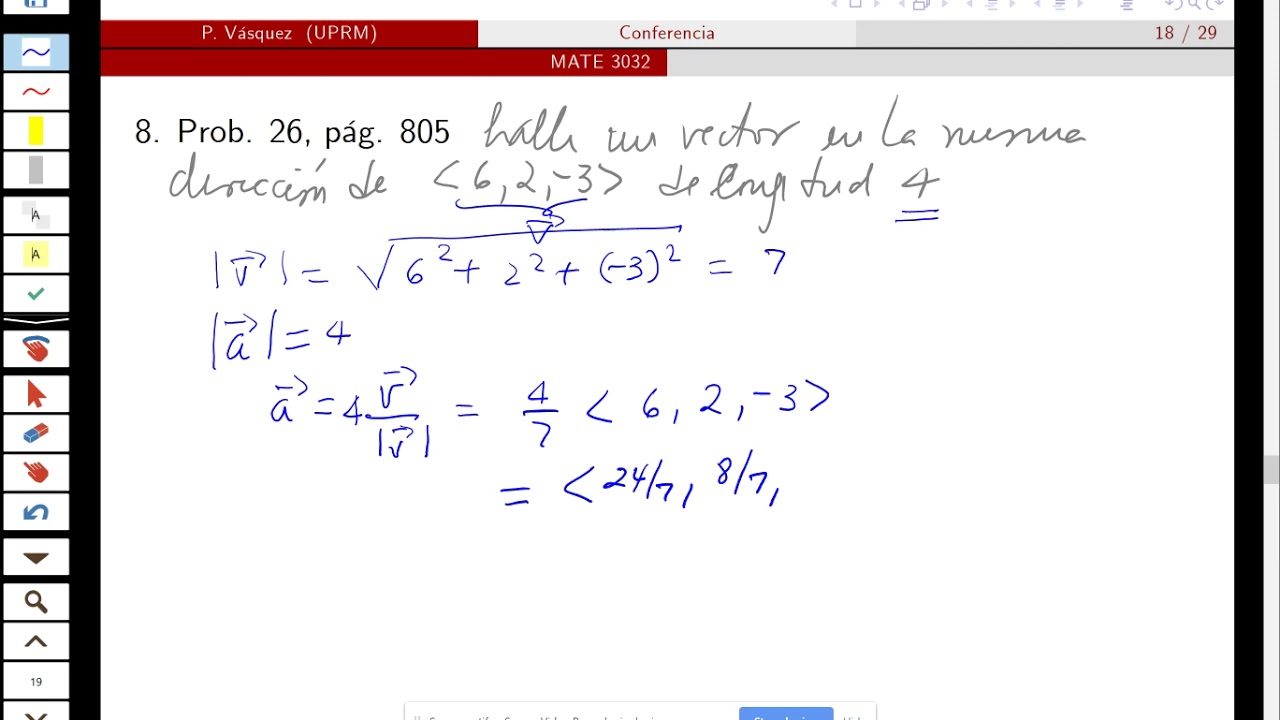 P. Vásquez (UPRM) Conferencia 18 / 29
MATE 3032
8. Prob. 26, pág. 805 halle un vector en la misma
dirección de <6, 2, -3> de longitud 4
|v⃗| = √6² + 2² + (-3)² = 7
|a⃗| = 4
a⃗ = 4 v⃗/|v⃗| = 4/7 < 6, 2, -3>
= < 24/7, 8/7,
A
A
19